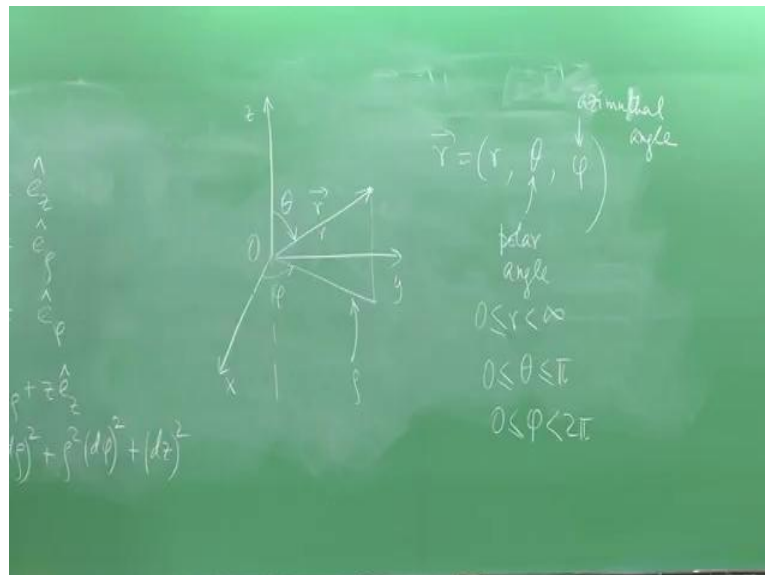 ê_z
ê_ρ
ê_φ
ρ + z ê_z
dρ)² + ρ²(dφ)² + (dz)²
z
θ
r⃗
r
O
φ
y
x
ρ
azimuthal
angle
r⃗ = (r, θ, φ)
polar
angle
0 ≤ r < ∞
0 ≤ θ ≤ π
0 ≤ φ < 2π